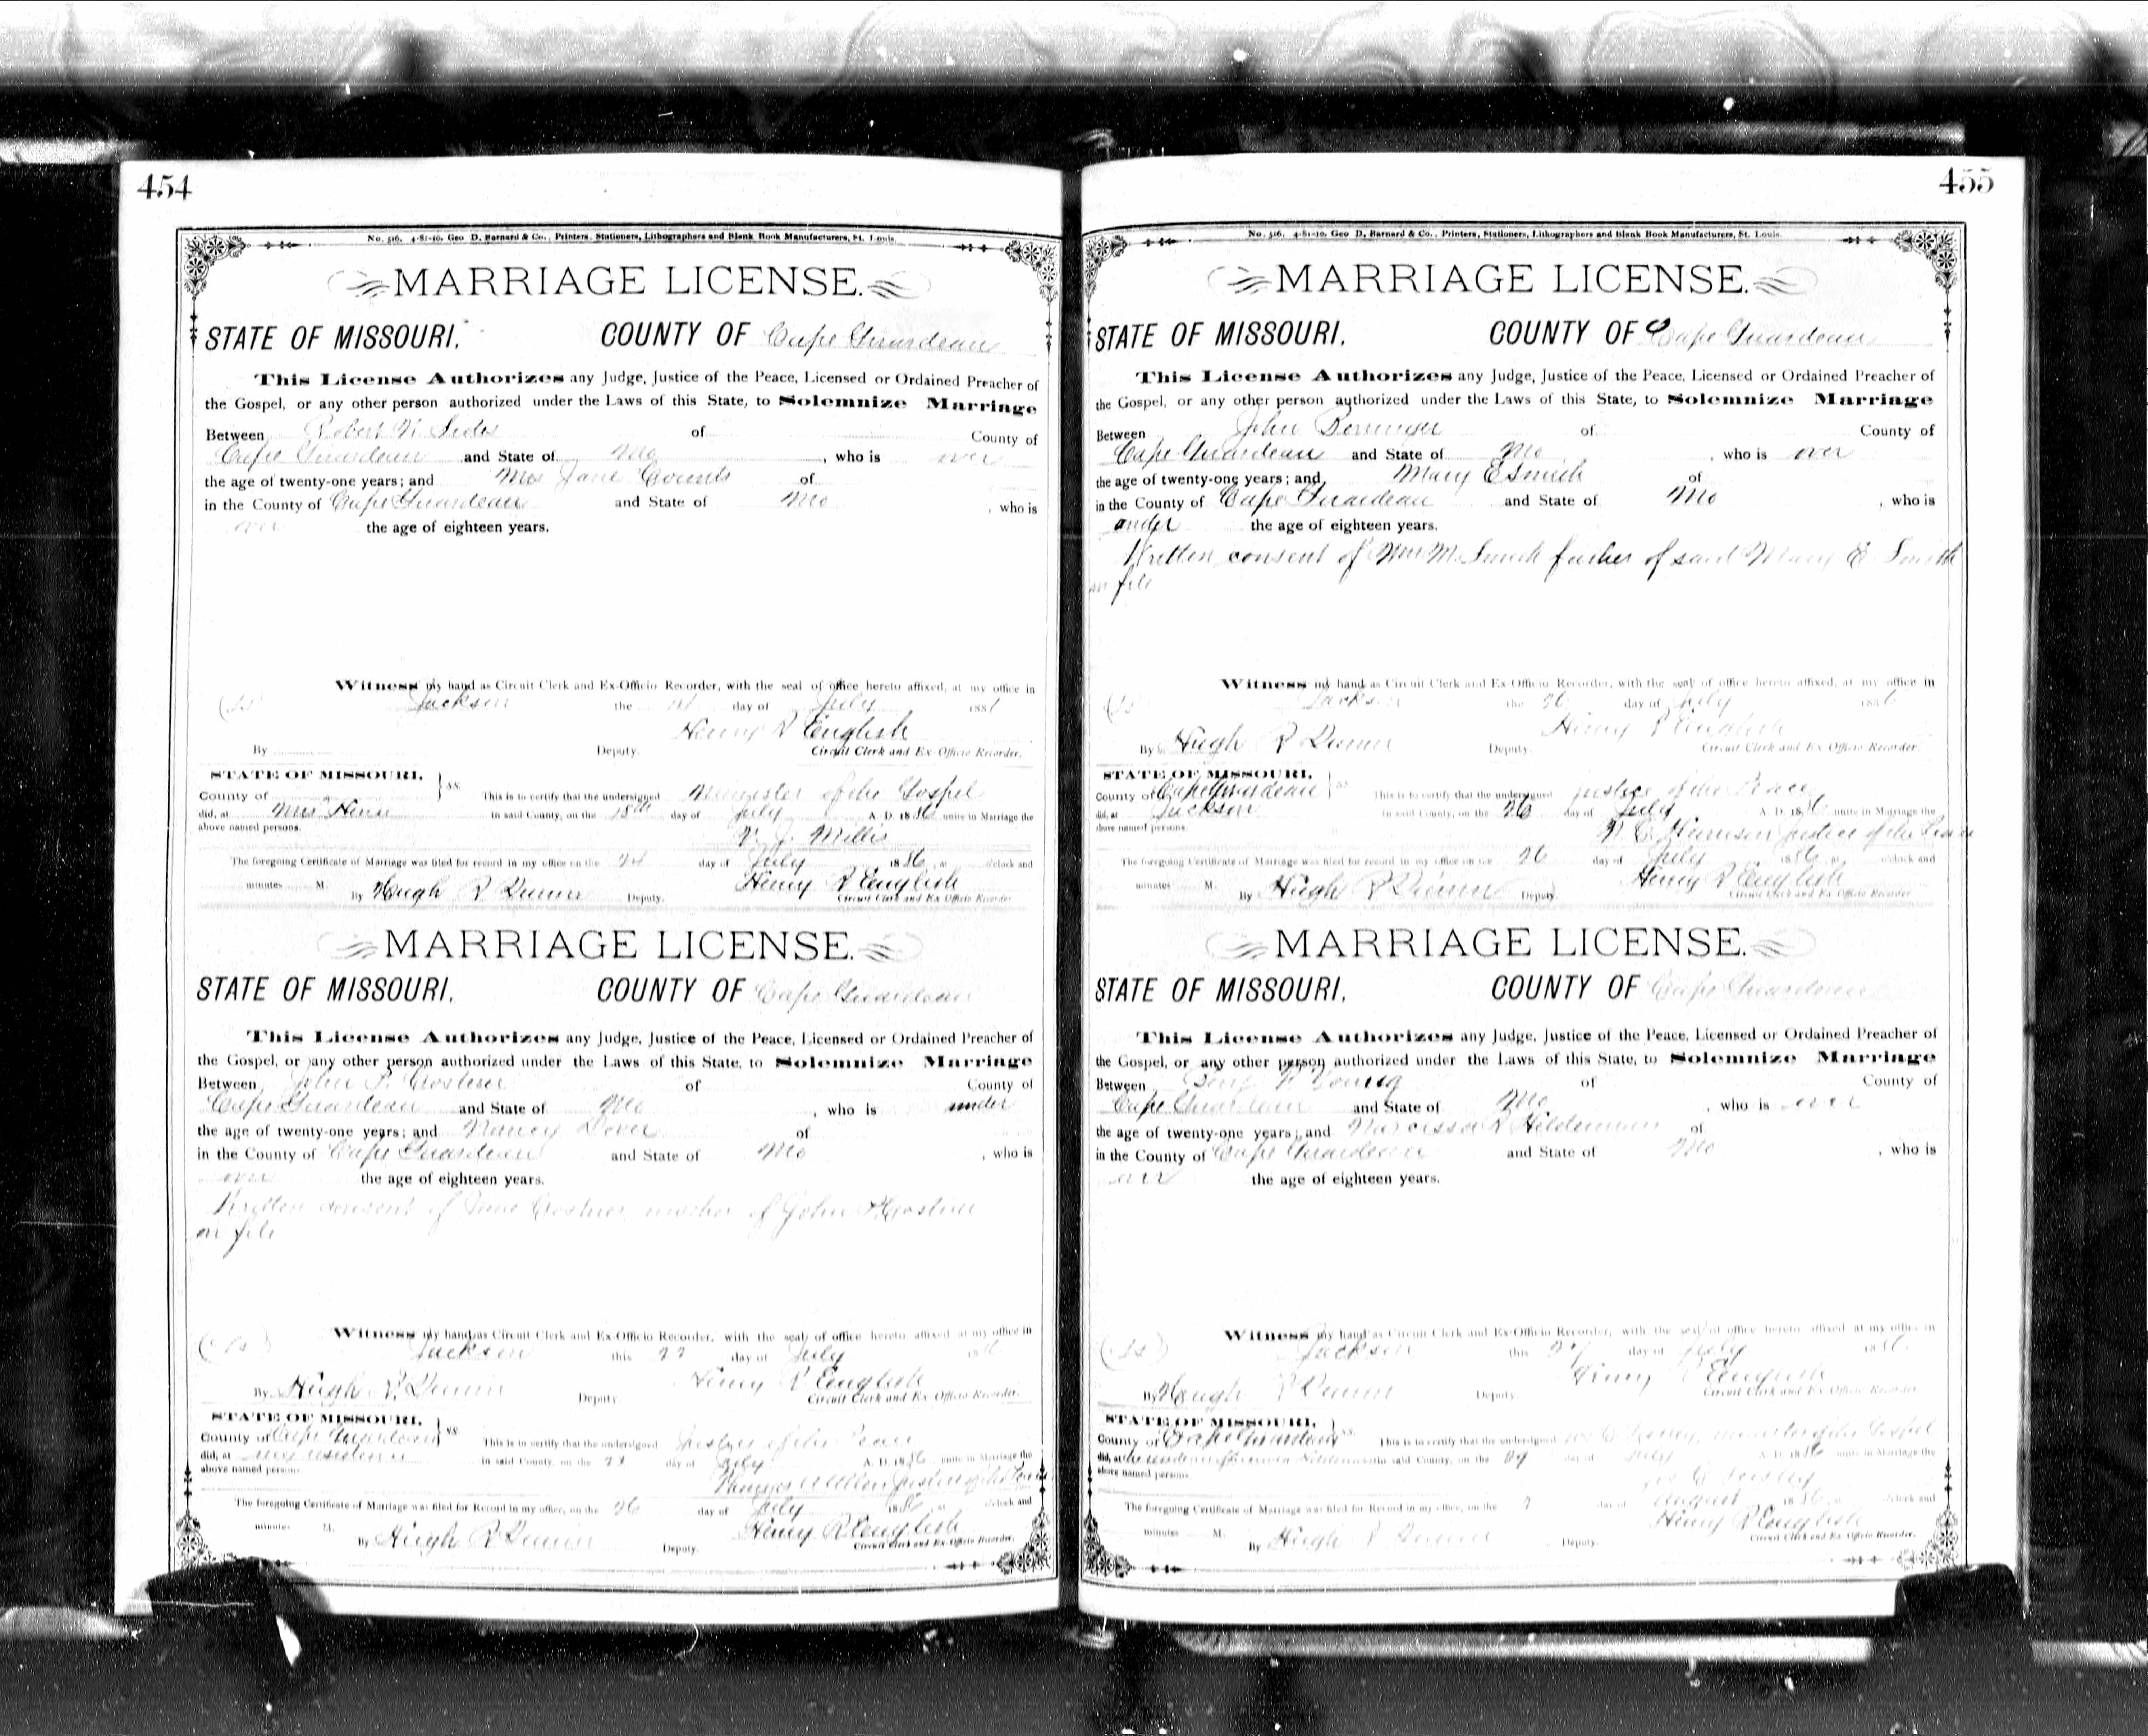 454
No. 516. 4-81-10. Geo D. Barnard & Co., Printers, Stationers, Lithographers and Blank Book Manufacturers, St. Louis.
MARRIAGE LICENSE.
STATE OF MISSOURI. COUNTY OF Cape Girardeau
This License Authorizes any Judge, Justice of the Peace, Licensed or Ordained Preacher of
the Gospel, or any other person authorized under the Laws of this State, to Solemnize Marriage
Between Robert W. Sides of County of
Cape Girardeau and State of Mo, who is over
the age of twenty-one years; and Mrs Jane Counts of
in the County of Cape Girardeau and State of Mo, who is
over the age of eighteen years.
Witness my hand as Circuit Clerk and Ex-Officio Recorder, with the seal of office hereto affixed, at my office in
Jackson the day of July 188
Henry R English
By Deputy. Circuit Clerk and Ex-Officio Recorder.
STATE OF MISSOURI,
County of } ss. This is to certify that the undersigned Minister of the Gospel
did, at in said County, on the 18th day of July A. D. 1886 unite in Marriage the
above named persons. Millis
The foregoing Certificate of Marriage was filed for record in my office on the 24 day of July 1886, at o'clock and
minutes M. Henry R English
By Hugh R Deputy. Circuit Clerk and Ex Officio Recorder
MARRIAGE LICENSE.
STATE OF MISSOURI. COUNTY OF Cape Girardeau
This License Authorizes any Judge, Justice of the Peace, Licensed or Ordained Preacher of
the Gospel, or any other person authorized under the Laws of this State, to Solemnize Marriage
Between John P. Costner of County of
Cape Girardeau and State of Mo, who is under
the age of twenty-one years; and Nancy Dover of
in the County of Cape Girardeau and State of Mo, who is
over the age of eighteen years.
Written consent of Jane Costner mother of John P Costner
on file
Witness my hand as Circuit Clerk and Ex-Officio Recorder, with the seal of office hereto affixed at my office in
Jackson this 22 day of July
Henry R English
By Hugh R. Deputy Circuit Clerk and Ex-Officio Recorder.
STATE OF MISSOURI,
County of Cape Girardeau } ss This is to certify that the undersigned Justice of the Peace
did, at my residence in said County, on the 22 day of July A. D. 1886 unite in Marriage the
above named persons. Justice of the Peace
The foregoing Certificate of Marriage was filed for Record in my office, on the 26 day of July 1886, at o'clock and
minutes M. Henry R English
By Hugh R Deputy. Circuit Clerk and Ex-Officio Recorder.
455
No. 516. 4-81-10. Geo D. Barnard & Co., Printers, Stationers, Lithographers and Blank Book Manufacturers, St. Louis.
MARRIAGE LICENSE.
STATE OF MISSOURI. COUNTY OF Cape Girardeau
This License Authorizes any Judge, Justice of the Peace, Licensed or Ordained Preacher of
the Gospel, or any other person authorized under the Laws of this State, to Solemnize Marriage
Between John of County of
Cape Girardeau and State of Mo, who is over
the age of twenty-one years; and Mary E Smith of
in the County of Cape Girardeau and State of Mo, who is
under the age of eighteen years.
Written consent of Wm M. Smith father of said Mary E Smith
on file
Witness my hand as Circuit Clerk and Ex-Officio Recorder, with the seal of office hereto affixed, at my office in
Jackson the 26 day of July 1886
Henry R English
By Hugh R Deputy. Circuit Clerk and Ex-Officio Recorder.
STATE OF MISSOURI,
County of Cape Girardeau } ss This is to certify that the undersigned Justice of the Peace
did, at Jackson in said County, on the 26 day of July A. D. 1886 unite in Marriage the
above named persons. Harrison Justice of the Peace
The foregoing Certificate of Marriage was filed for record in my office on the 26 day of July 1886, at o'clock and
minutes M. Henry R English
By Hugh R Deputy. Circuit Clerk and Ex Officio Recorder
MARRIAGE LICENSE.
STATE OF MISSOURI. COUNTY OF Cape Girardeau
This License Authorizes any Judge, Justice of the Peace, Licensed or Ordained Preacher of
the Gospel, or any other person authorized under the Laws of this State, to Solemnize Marriage
Between Young of County of
Cape Girardeau and State of Mo, who is over
the age of twenty-one years; and Narcissa of
in the County of Cape Girardeau and State of Mo, who is
over the age of eighteen years.
Witness my hand as Circuit Clerk and Ex-Officio Recorder, with the seal of office hereto affixed at my office in
Jackson this 27 day of July 1886
Henry R English
By Hugh R Deputy. Circuit Clerk and Ex-Officio Recorder.
STATE OF MISSOURI,
County of Cape Girardeau } ss. This is to certify that the undersigned minister of the Gospel
did, at in said County, on the 29 day of July A. D. 1886 unite in Marriage the
above named persons.
The foregoing Certificate of Marriage was filed for Record in my office, on the 7 day of August 1886, at o'clock and
minutes M. Henry R English
By Hugh R Deputy. Circuit Clerk and Ex-Officio Recorder.